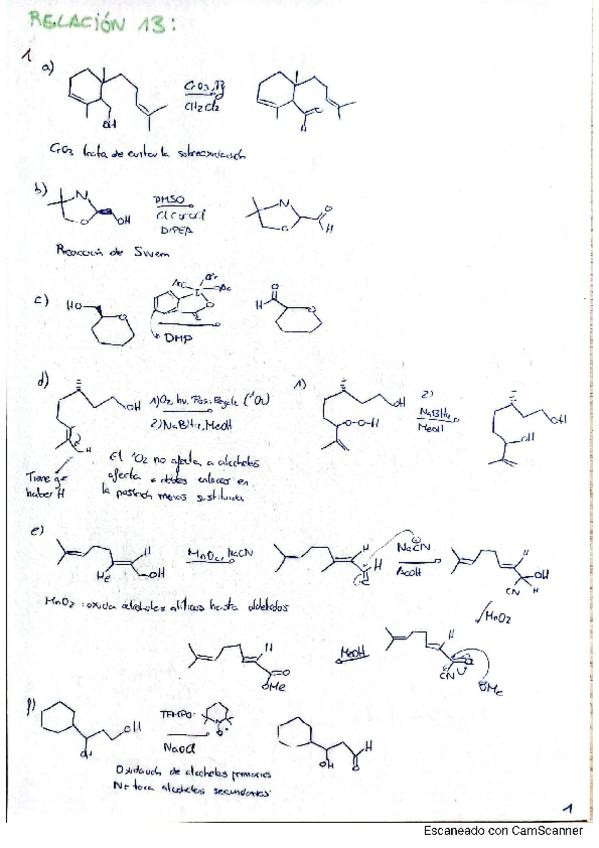 RELACIÓN 13:
1
a)
CrO3, Py
CH2Cl2
OH
CrO3 trata de evitar la sobreoxidación
b)
N
O
OH
DMSO
DIPEA
N
O
H
Reacción de Swern
c)
HO
O
AcO
OAc
OAc
I
O
DMP
O
H
O
d)
OH
1) O2, hν, Rosa Bengala (¹O2)
2) NaBH4, MeOH
1)
OH
O-O-H
2)
NaBH4
MeOH
OH
OH
H
Tiene que
haber H
El ¹O2 no afecta a alcoholes
afecta a dobles enlaces en
la posición menos sustituida
e)
H
Me
OH
MnO2, NaCN
H
H
O
NaCN
AcOH
H
OH
CN
H
MnO2: oxida alcoholes alílicos hasta aldehídos
MnO2
H
O
OMe
MeOH
H
O
CN
OMe
f)
OH
OH
TEMPO:
N
O•
NaOCl
OH
O
H
Oxidación de alcoholes primarios
No toca alcoholes secundarios
1
Escaneado con CamScanner